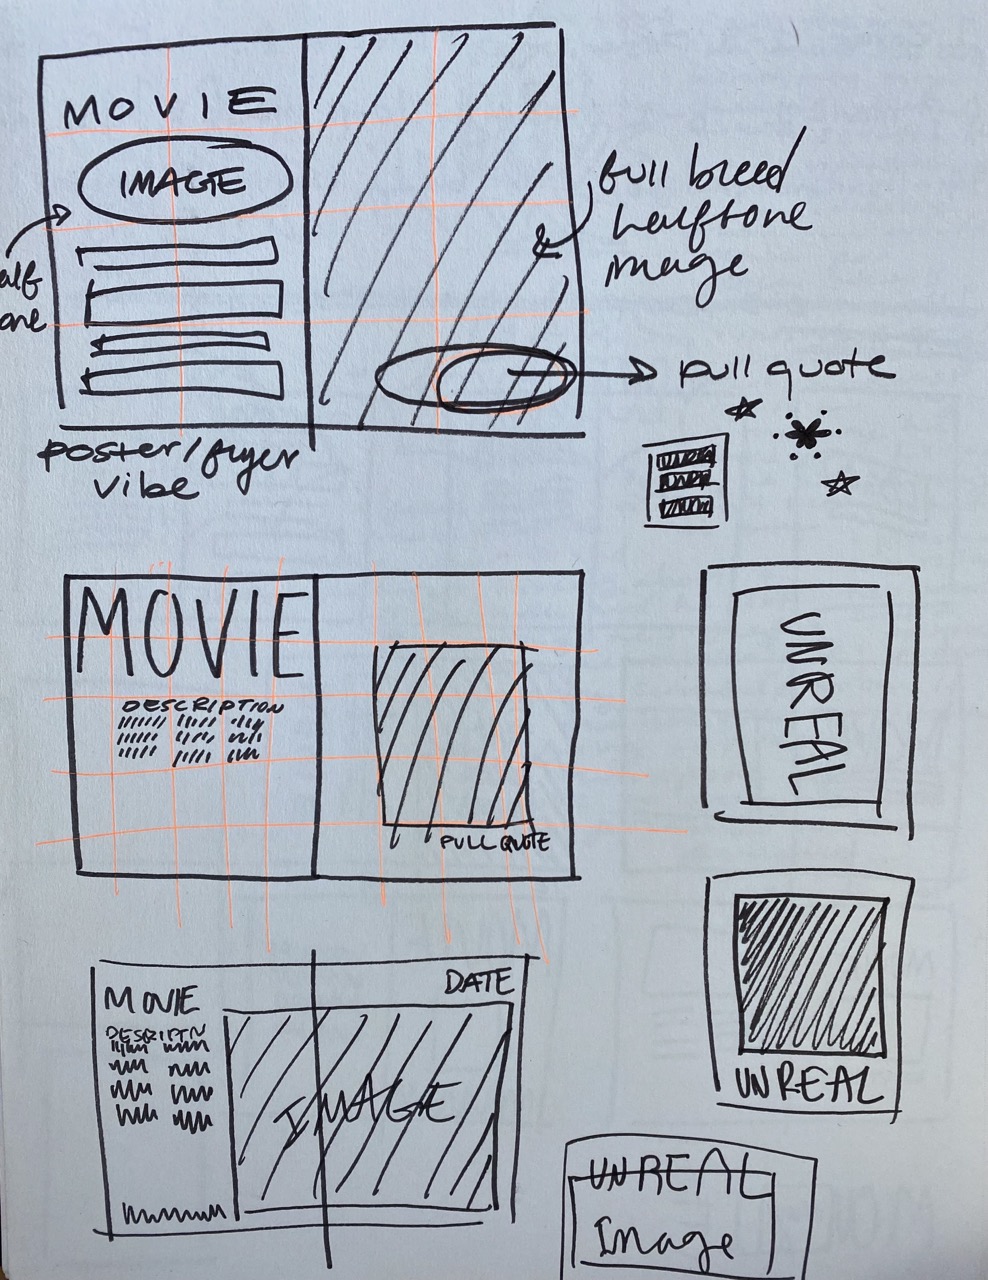 MOVIE
IMAGE
alf
one
full breed
halftone
image
pull quote
poster/flyer
vibe
MOVIE
DESCRIPTION
PULL QUOTE
UNREAL
UNREAL
MOVIE
DESCRIPTN
DATE
IMAGE
UNREAL
Image